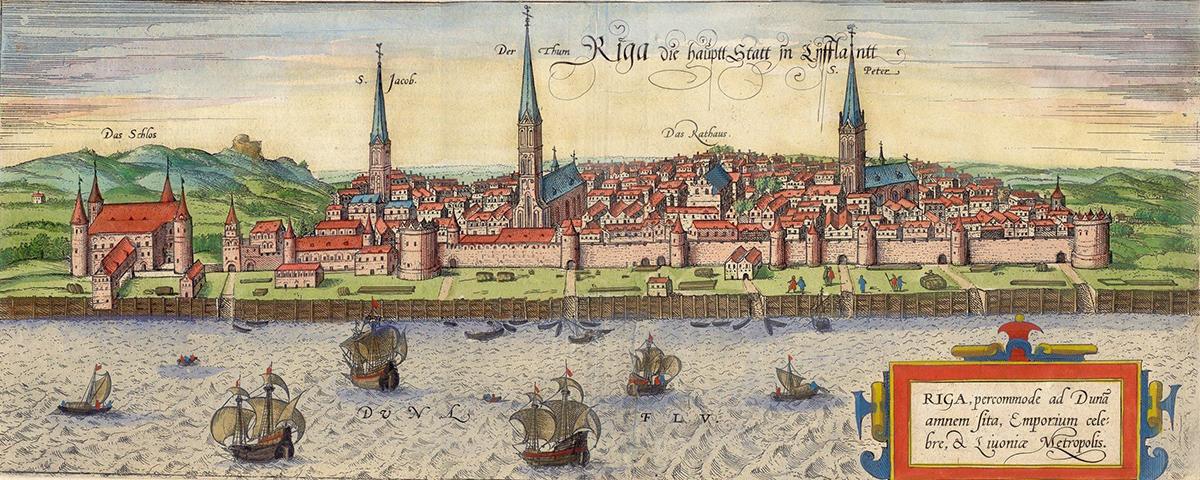 Riga die hauptt Statt in Lyfflantt
Der Thum
S. Jacob.
S. Peter
Das Schlos
Das Rathaus.
DVNA FLV.
RIGA, percommode ad Dunā
amnem sita, Emporium cele-
bre, & Liuoniæ Metropolis.